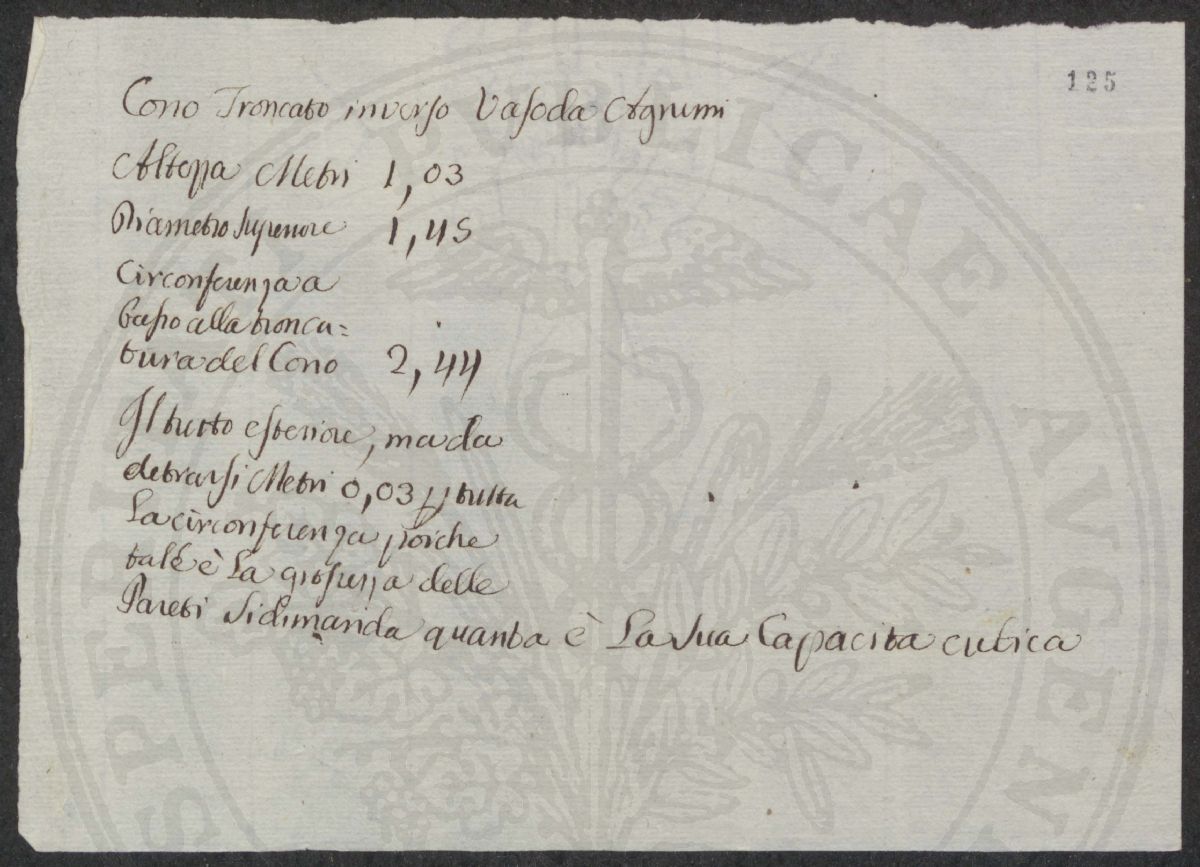 125
Cono Troncato inverso Vaso da Agrumi
Altezza Metri 1,03
Diametro Superiore 1,45
Circonferenza a
basso alla tronca=
tura del Cono 2,44
Il tutto esteriore, ma da
detrarsi Metri 0,03 p tutta
La circonferenza poiche
tale è La grossezza delle
Pareti Si dimanda quanta è La Sua Capacita cubica
PUBLICAE AVGEN
SPERITATI